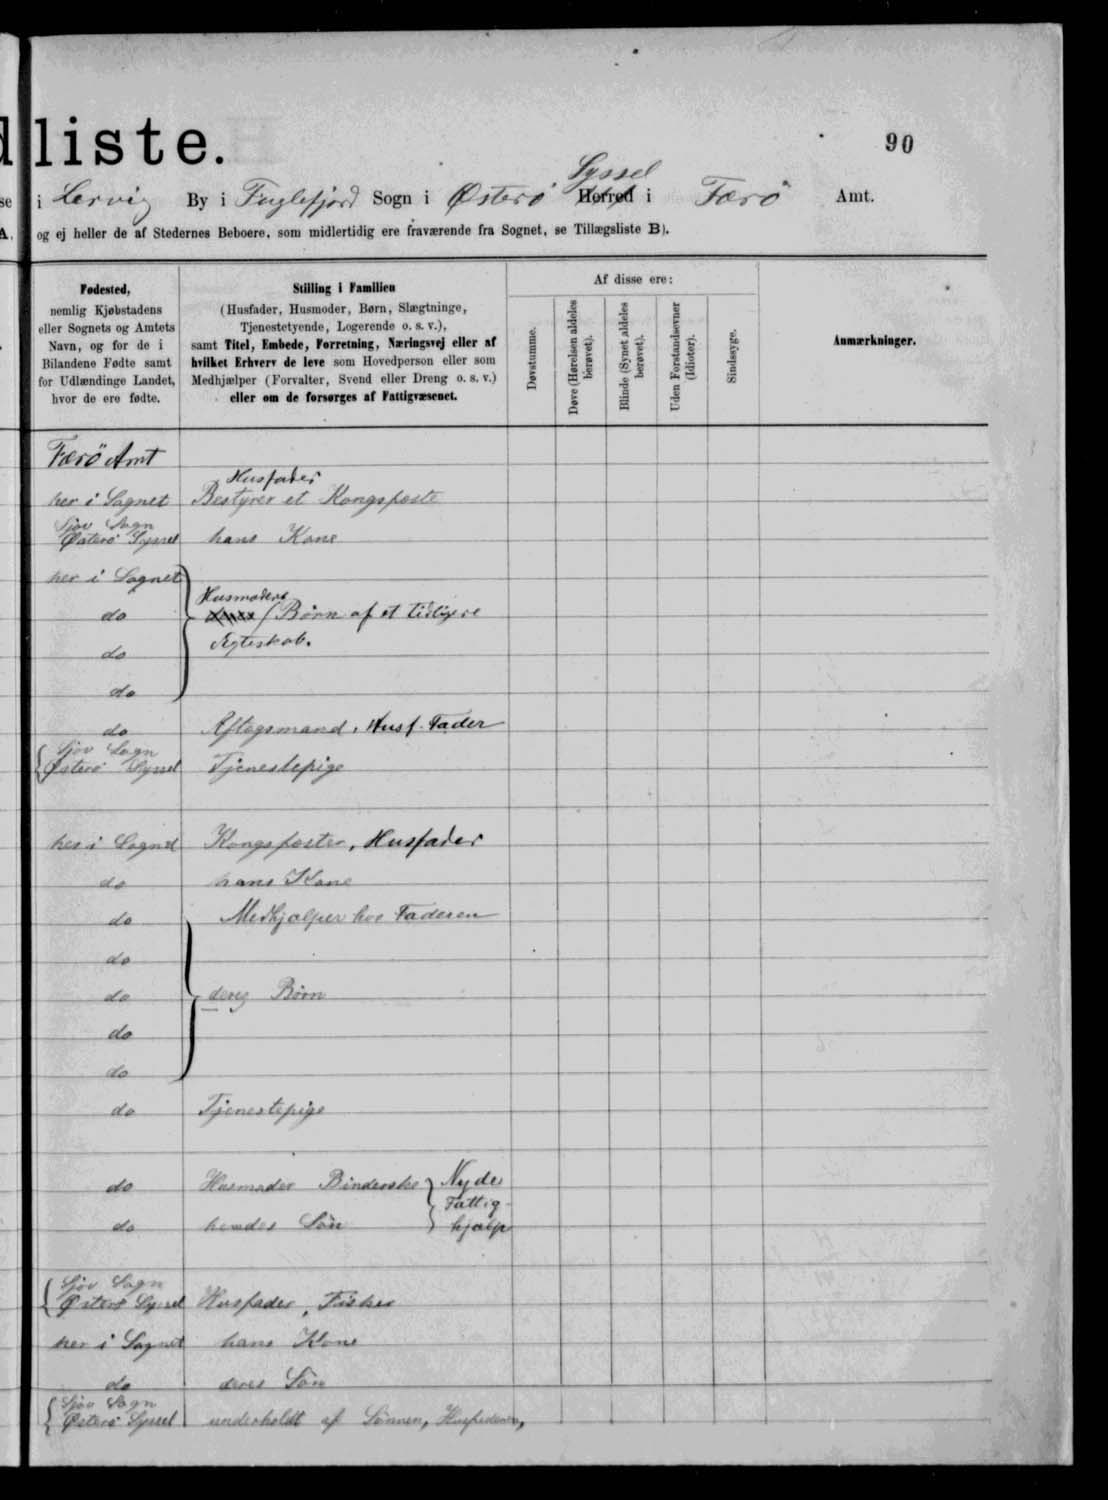 dliste.
90
se i Lervig By i Fuglefjord Sogn i Østerø Herred Syssel i Færø Amt.
A, og ej heller de af Stedernes Beboere, som midlertidig ere fraværende fra Sognet, se Tillægsliste B).
Fødested,
nemlig Kjøbstadens
eller Sognets og Amtets
Navn, og for de i
Bilandene Fødte samt
for Udlændinge Landet,
hvor de ere fødte.
Stilling i Familien
(Husfader, Husmoder, Børn, Slægtninge,
Tjenestetyende, Logerende o. s. v.),
samt Titel, Embede, Forretning, Næringsvej eller af
hvilket Erhverv de leve som Hovedperson eller som
Medhjælper (Forvalter, Svend eller Dreng o. s. v.)
eller om de forsørges af Fattigvæsenet.
Af disse ere:
Døvstumme.
Døve (Hørelsen aldeles
berøvet).
Blinde (Synet aldeles
berøvet).
Uden Forstandsevner
(Idioter).
Sindssyge.
Anmærkninger.
Færö Amt
Husfader
her i Sognet Bestyrer et Kongsfæste
Sjov Sogn
Østerø Syssel hans Kone
her i Sognet
Husmoders
do Børn af et tidligere
do Ægteskab.
do
do Aftægsmand, Husf. Fader
Sjov Sogn
Østerø Syssel Tjenestepige
her i Sognet Kongsfæster, Husfader
do hans Kone
do Medhjælper hos Faderen
do
do deres Børn
do
do
do Tjenestepige
do Husmoder Binderske Nyder
Fattig-
do hendes Søn hjælp
Sjov Sogn
Østerø Syssel Husfader, Fisker
her i Sognet hans Kone
do deres Søn
Sjov Sogn
Østerø Syssel underholdt af Sønnen, Husfaderen,